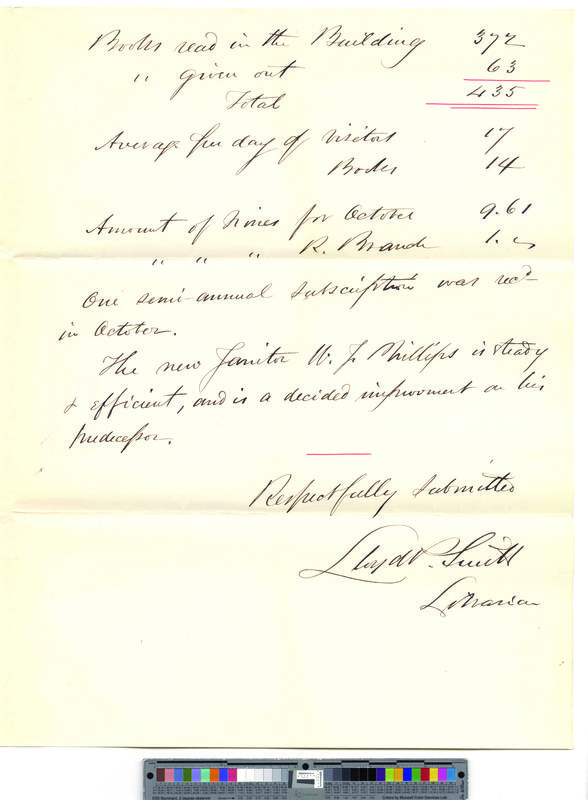 Books read in the Building 372
" given out 63
Total 435
Average per day of visitors 17
Books 14
Amount of Fines for October 9.61
" " " R. Branch 1.
One semi-annual subscription was recd
in October.
The new Janitor W. J. Phillips is steady
& efficient, and is a decided improvement on his
predecessor.
Respectfully submitted
Lloyd P. Smith
Librarian